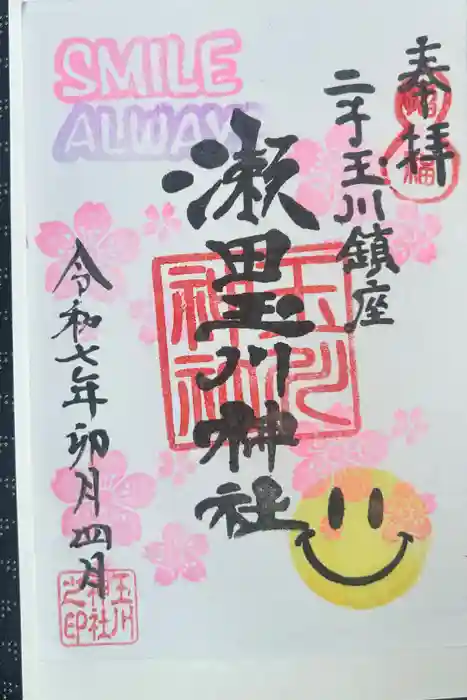 SMILE
ALWAY
奉拝
二子玉川鎮座
瀬田玉川神社
令和七年卯月四月
福
玉川
神社
玉川
神社
之印